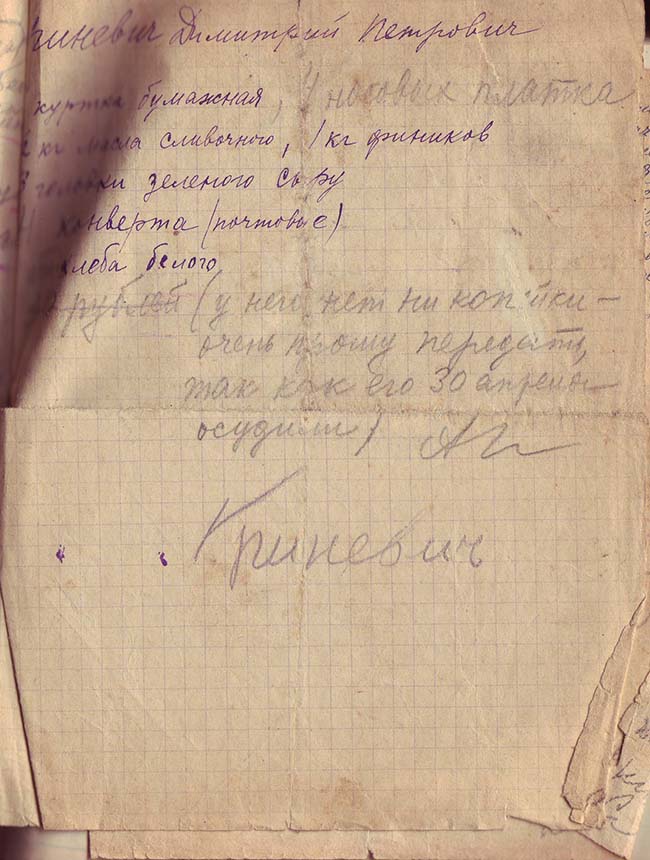 риневич Димитрий Петрович
куртка бумажная, 4 носовых платка
кг масла сливочного, 1 кг фиников
3 головки зеленого сыру
конверта (почтовые)
хлеба белого
рублей (у него нет ни копейки —
очень прошу передать,
так как его 30 апреля
осудили)
Криневич